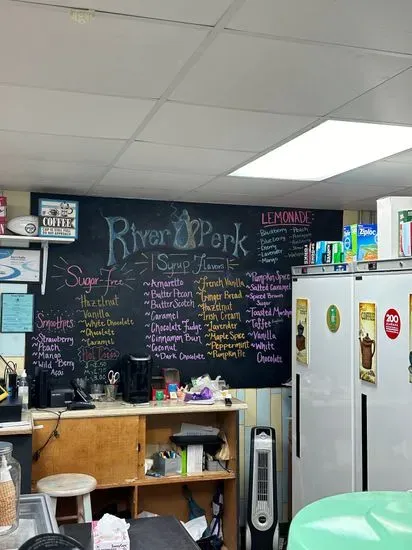 River Perk
Syrup Flavors
Sugar Free
~Hazelnut
~Vanilla
~White Chocolate
~Chocolate
~Caramel
Hot Cocoa
Smoothies
~Strawberry
~Peach
~Mango
~Wild Berry
~Acai
~Amaretto
~Butter Pecan
~ButterScotch
~Caramel
~Chocolate Fudge
~Cinnamon Bun
~Coconut
~Dark Chocolate
~French Vanilla
~Ginger Bread
~Hazelnut
~Irish Cream
~Lavender
~Maple Spice
~Peppermint
~Pumpkin Pie
~Pumpkin Spice
~Salted Caramel
~Spiced Brown Sugar
~Toasted Marshmallow
~Toffee
~Vanilla
~White Chocolate
LEMONADE:
~Blackberry
~Blueberry
~Cherry
~Lavender
~Mango
~Peach
~Strawberry
COFFEE
Ziploc
200